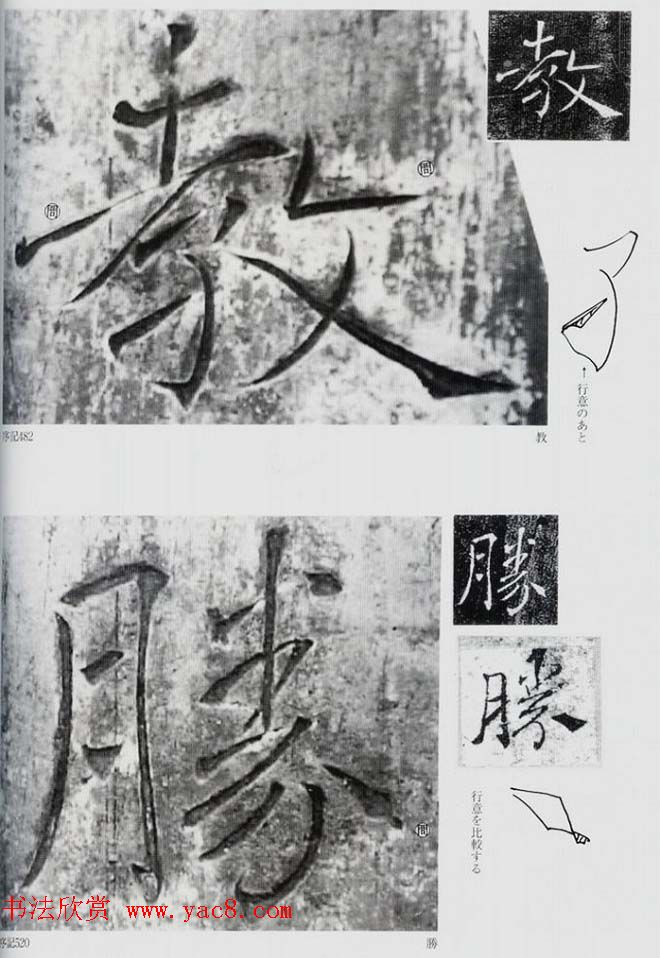 教
教
行意のあと
序記482
教
勝
勝
勝
行意を比較する
书法欣赏 www.yac8.com
序記520
勝